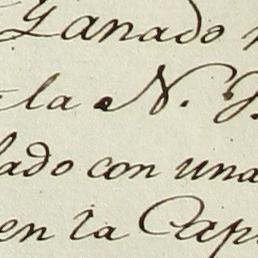 Ganado
la N.
lado con una
en la Capi